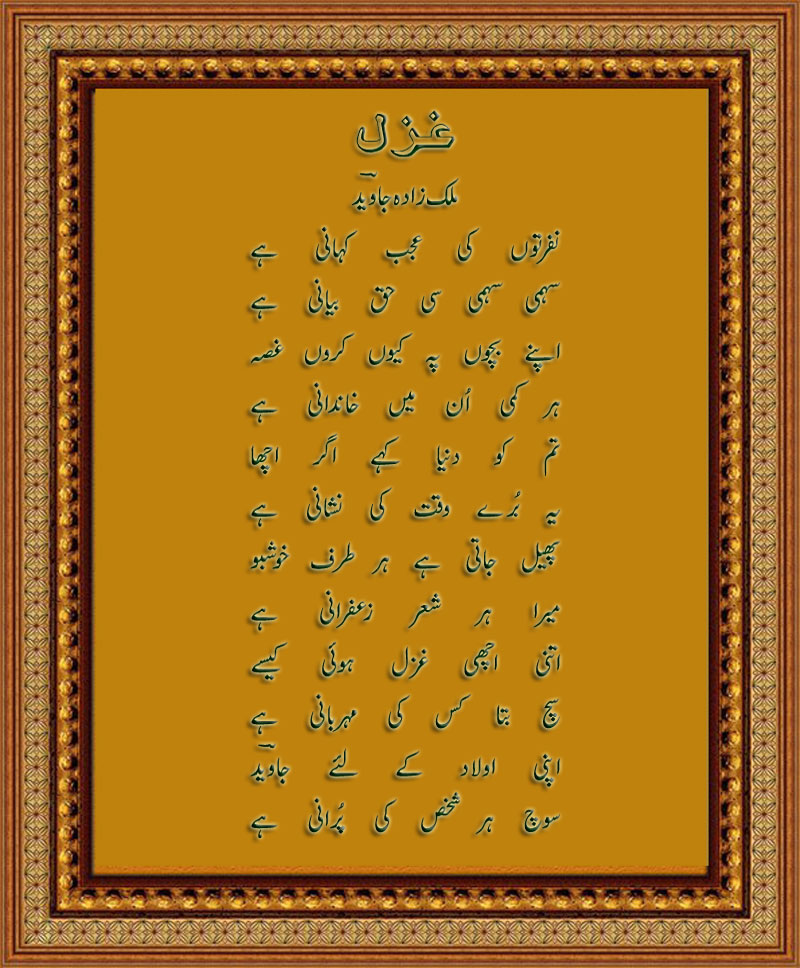 غزل
ملک زادہ جاویدؔ
نفرتوں کی عجب کہانی ہے
سہمی سہمی سی حق بیانی ہے
اپنے بچوں پہ کیوں کروں غصہ
ہر کمی اُن میں خاندانی ہے
تم کو دنیا کہے اگر اچھا
یہ بُرے وقت کی نشانی ہے
پھیل جاتی ہے ہر طرف خوشبو
میرا ہر شعر زعفرانی ہے
اتنی اچھی غزل ہوئی کیسے
سچ بتا کس کی مہربانی ہے
اپنی اولاد کے لئے جاویدؔ
سوچ ہر شخص کی پُرانی ہے